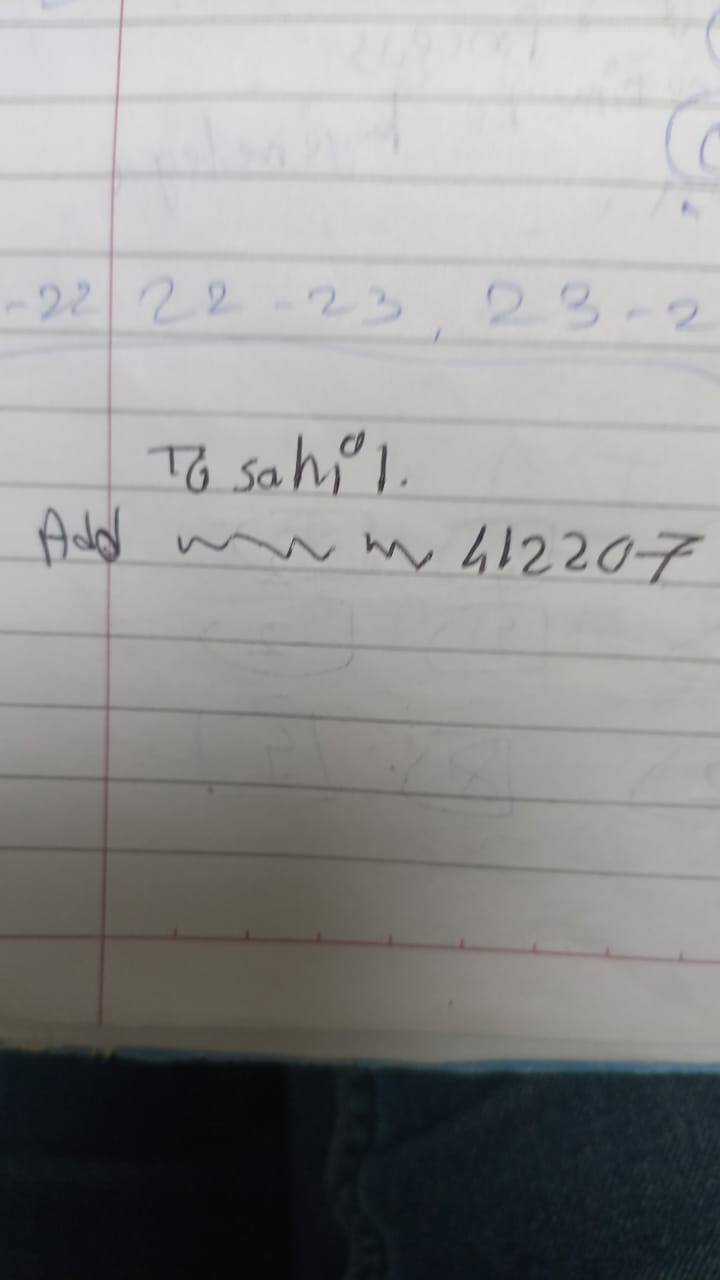 -22 22-23, 23-2
To sahil.
Add 412207